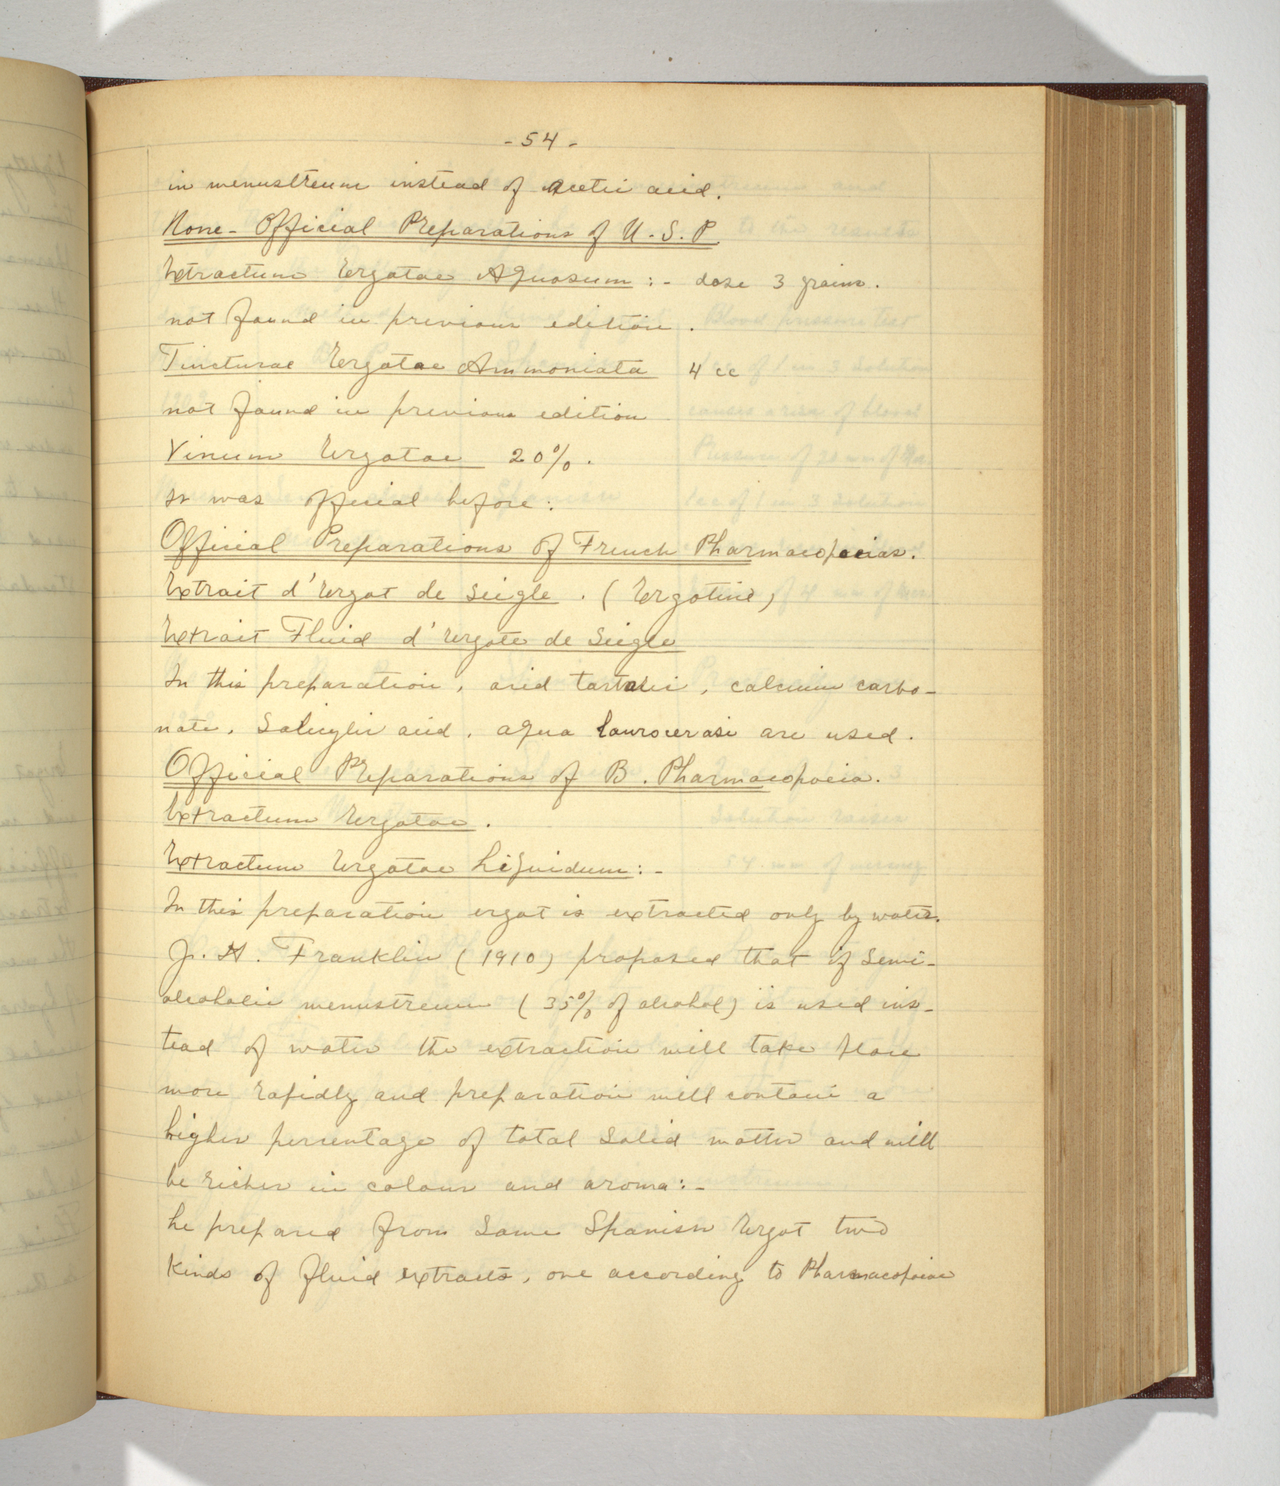 - 54 -
in menustreum instead of acetic acid.
None - Official Preparations of U. S. P.
Extractum Ergotae Aquosum : - dose 3 grains.
not found in previous edition .
Tincturae Ergotae Ammoniata 4 cc
not found in previous edition
Vinum Ergotae 20% .
It was official before :
Official Preparations of French Pharmacopoeias.
Extrait d'Ergot de Seigle . ( Ergotine )
Extrait Fluid d'Ergote de Seigle
In this preparation , acid tartaric , calcium carbo-
nate , Salicylic acid , aqua laurocerasi are used .
Official Preparations of B . Pharmacopoeia .
Extractum Ergotae .
Extractum Ergotae Liquidum : -
In this preparation ergot is extracted only by water.
J. H. Franklin ( 1910 ) proposed that if Semi-
alcoholic menustreum ( 35% of alcohol ) is used ins-
tead of water the extraction will take place
more rapidly and preparation will contain a
higher percentage of total solid matter and will
be richer in colour and aroma : -
he prepared from Same Spanish Ergot two
Kinds of fluid extracts , one according to Pharmacopoiae